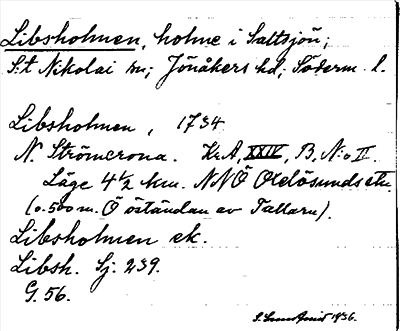 Libsholmen, holme i Saltsjön;
S:t Nikolai sn; Jönåkers hd; Söderm. l.
Libsholmen, 1734
N. Strömcrona. Kr A, XXIV, B, N:o II.
Läge 4 1/2 km. NNÖ Oxelösunds stn.
(o. 500 m. Ö öständan av Tallarn).
Libsholmen ek.
Libsh. Sj. 239.
G. 56.
1936.